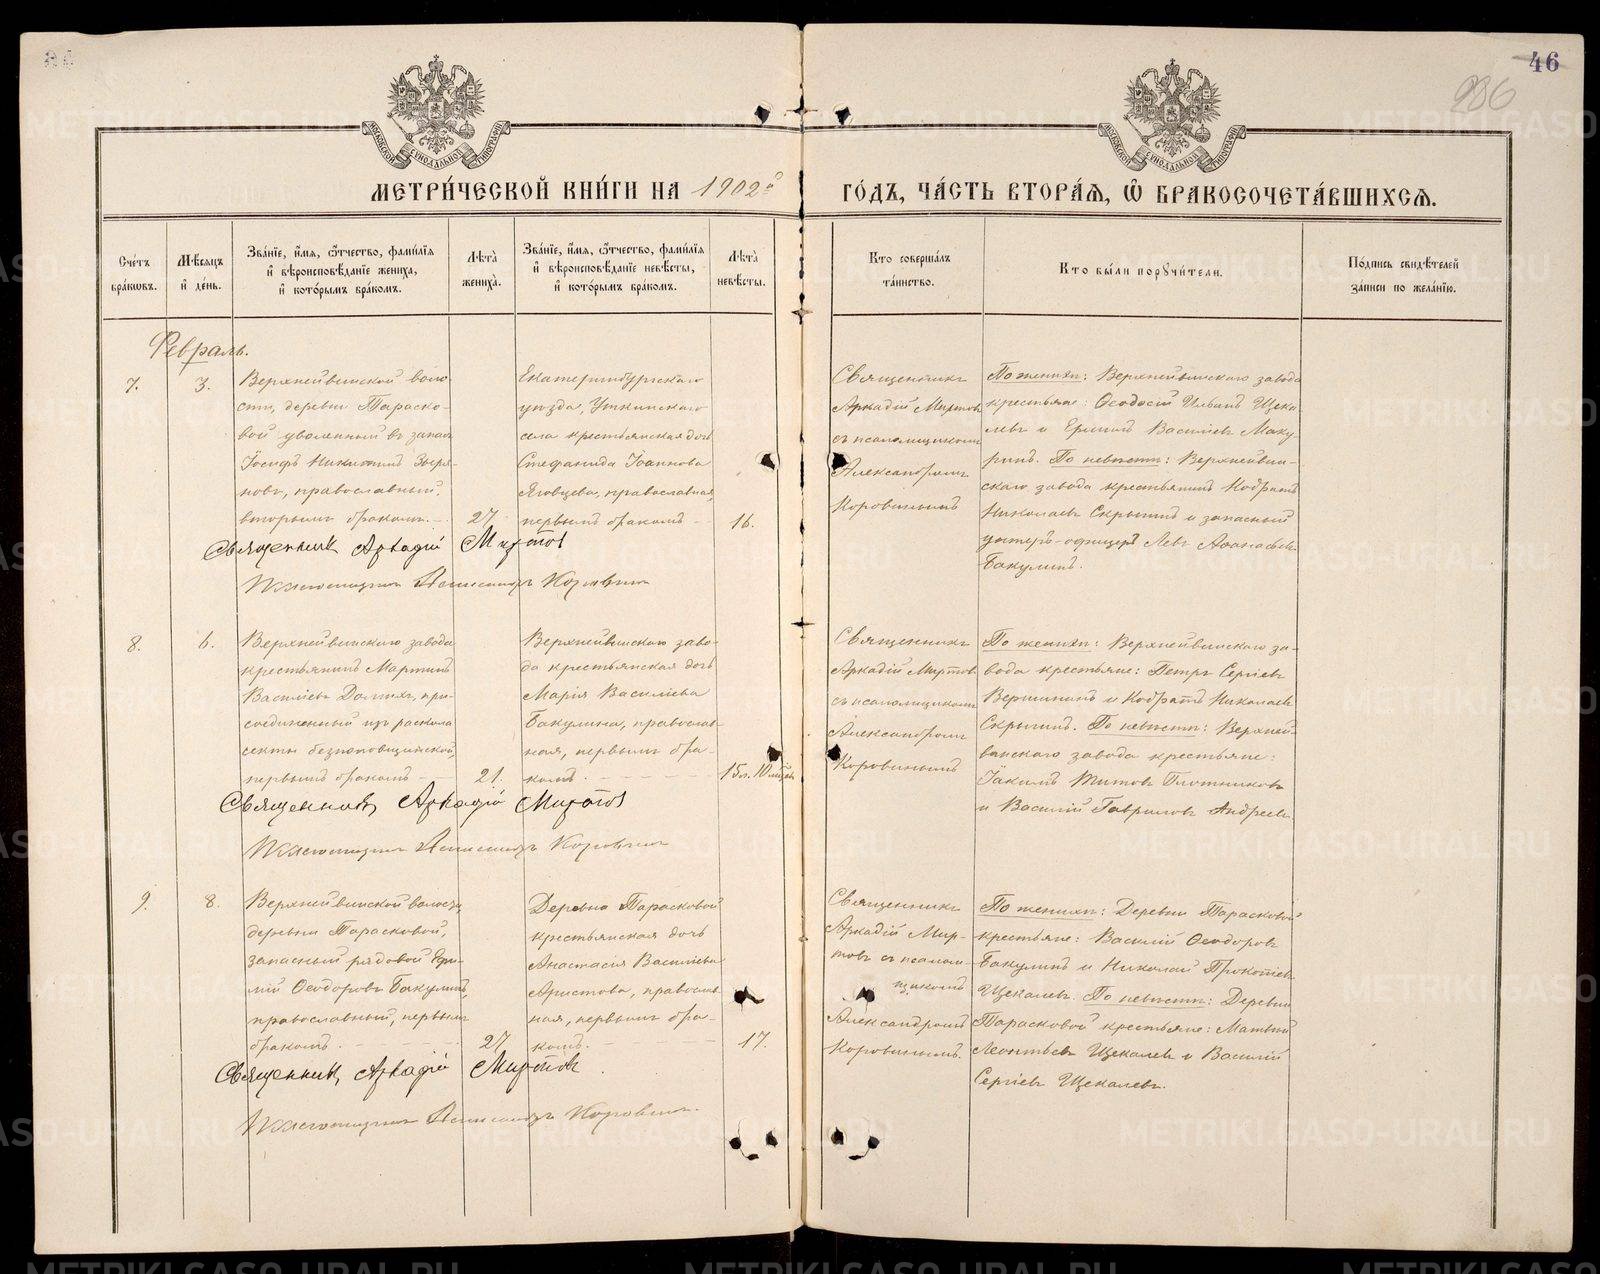 46
986
МЕТРИ́ЧЕСКОЙ КНИ́ГИ НА 1902й ГО́ДЪ, ЧА́СТЬ ВТОРА́Я, Ѿ БРАКОСОЧЕТА́ВШИХСЯ.
МОСКОВСКОЙ СУНОДАЛЬНОЙ ТИПОГРАФІИ
МОСКОВСКОЙ СУНОДАЛЬНОЙ ТИПОГРАФІИ
Сче́тъ
бра́ковъ.
Мѣ́сяцъ
и҆ де́нь.
Зва́нїе, и҆́мя, ѻ҆́тчество, фами́лїя
и҆ вѣроисповѣ́данїе жениха̀,
и҆ кото́рымъ бра́комъ.
Лѣ́та
жениха̀.
Зва́нїе, и҆́мя, ѻ҆́тчество, фами́лїя
и҆ вѣроисповѣ́данїе невѣ́сты,
и҆ кото́рымъ бра́комъ.
Лѣ́та
невѣ́сты.
Кто̀ соверша́лъ
та́инство.
Кто̀ бы́ли порꙋчи́тели.
По́дпись свидѣ́телей
за́писи по жела́нїю.
Февраль.
7.
3.
Верхнейвинской воло-
сти, деревни Тараско-
вой уволенный въ запасъ
Іосифъ Никитинъ Зыря-
новъ, православный,
вторымъ бракомъ.
27
Екатеринбургскаго
уѣзда, Уткинскаго
села крестьянская дочь
Стефанида Іоаннова
Яговцева, православная,
первымъ бракомъ
16.
Священникъ
Аркадій Миртовъ
съ псаломщикомъ
Александромъ
Коровинымъ
По женихѣ: Верхнейвинскаго завода
крестьяне: Ѳеодосій Ильинъ Щека-
левъ и Ермилъ Василіевъ Маку-
ринъ. По невѣстѣ: Верхнейвин-
скаго завода крестьянинъ Кодратъ
Николаевъ Скрыпинъ и запасный
унтеръ-офицеръ Левъ Аѳанасьевъ
Бакулинъ.
Священникъ Аркадій Миртовъ
Псаломщикъ Александръ Коровинъ
8.
6.
Верхнейвинскаго завода
крестьянинъ Мартинъ
Василіевъ Долгихъ, при-
соединенный изъ раскола
секты безпоповщинской,
первымъ бракомъ
21.
Верхнейвинскаго заво-
да крестьянская дочь
Марія Василіева
Бакулина, православ-
ная, первымъ бра-
комъ.
15л. 10мѣс.
Священникъ
Аркадій Миртовъ
съ псаломщикомъ
Александромъ
Коровинымъ
По женихѣ: Верхнейвинскаго за-
вода крестьяне: Петръ Сергіевъ
Вершининъ и Кодратъ Николаевъ
Скрыпинъ. По невѣстѣ: Верхней-
винскаго завода крестьяне:
Іакимъ Титовъ Плотниковъ
и Василій Гавриловъ Андреевъ
Священникъ Аркадій Миртовъ
Псаломщикъ Александръ Коровинъ
9.
8.
Верхнейвинской волости,
деревни Тарасковой,
запасный рядовой Ефи-
мій Ѳеодоровъ Бакулинъ,
православный, первымъ
бракомъ.
27
Деревни Тарасковой
крестьянская дочь
Анастасія Василіева
Аристова, православ-
ная, первымъ бра-
комъ.
17.
Священникъ
Аркадій Мир-
товъ съ псалом-
щикомъ
Александромъ
Коровинымъ.
По женихѣ: Деревни Тарасковой
крестьяне: Василій Ѳеодоровъ
Бакулинъ и Николай Прокопіевъ
Щекалевъ. По невѣстѣ: Деревни
Тарасковой крестьяне: Матѳій
Леонтьевъ Щекалевъ и Василій
Сергіевъ Щекалевъ.
Священникъ Аркадій Миртовъ
Псаломщикъ Александръ Коровинъ.
METRIKI.GASO-URAL.RU